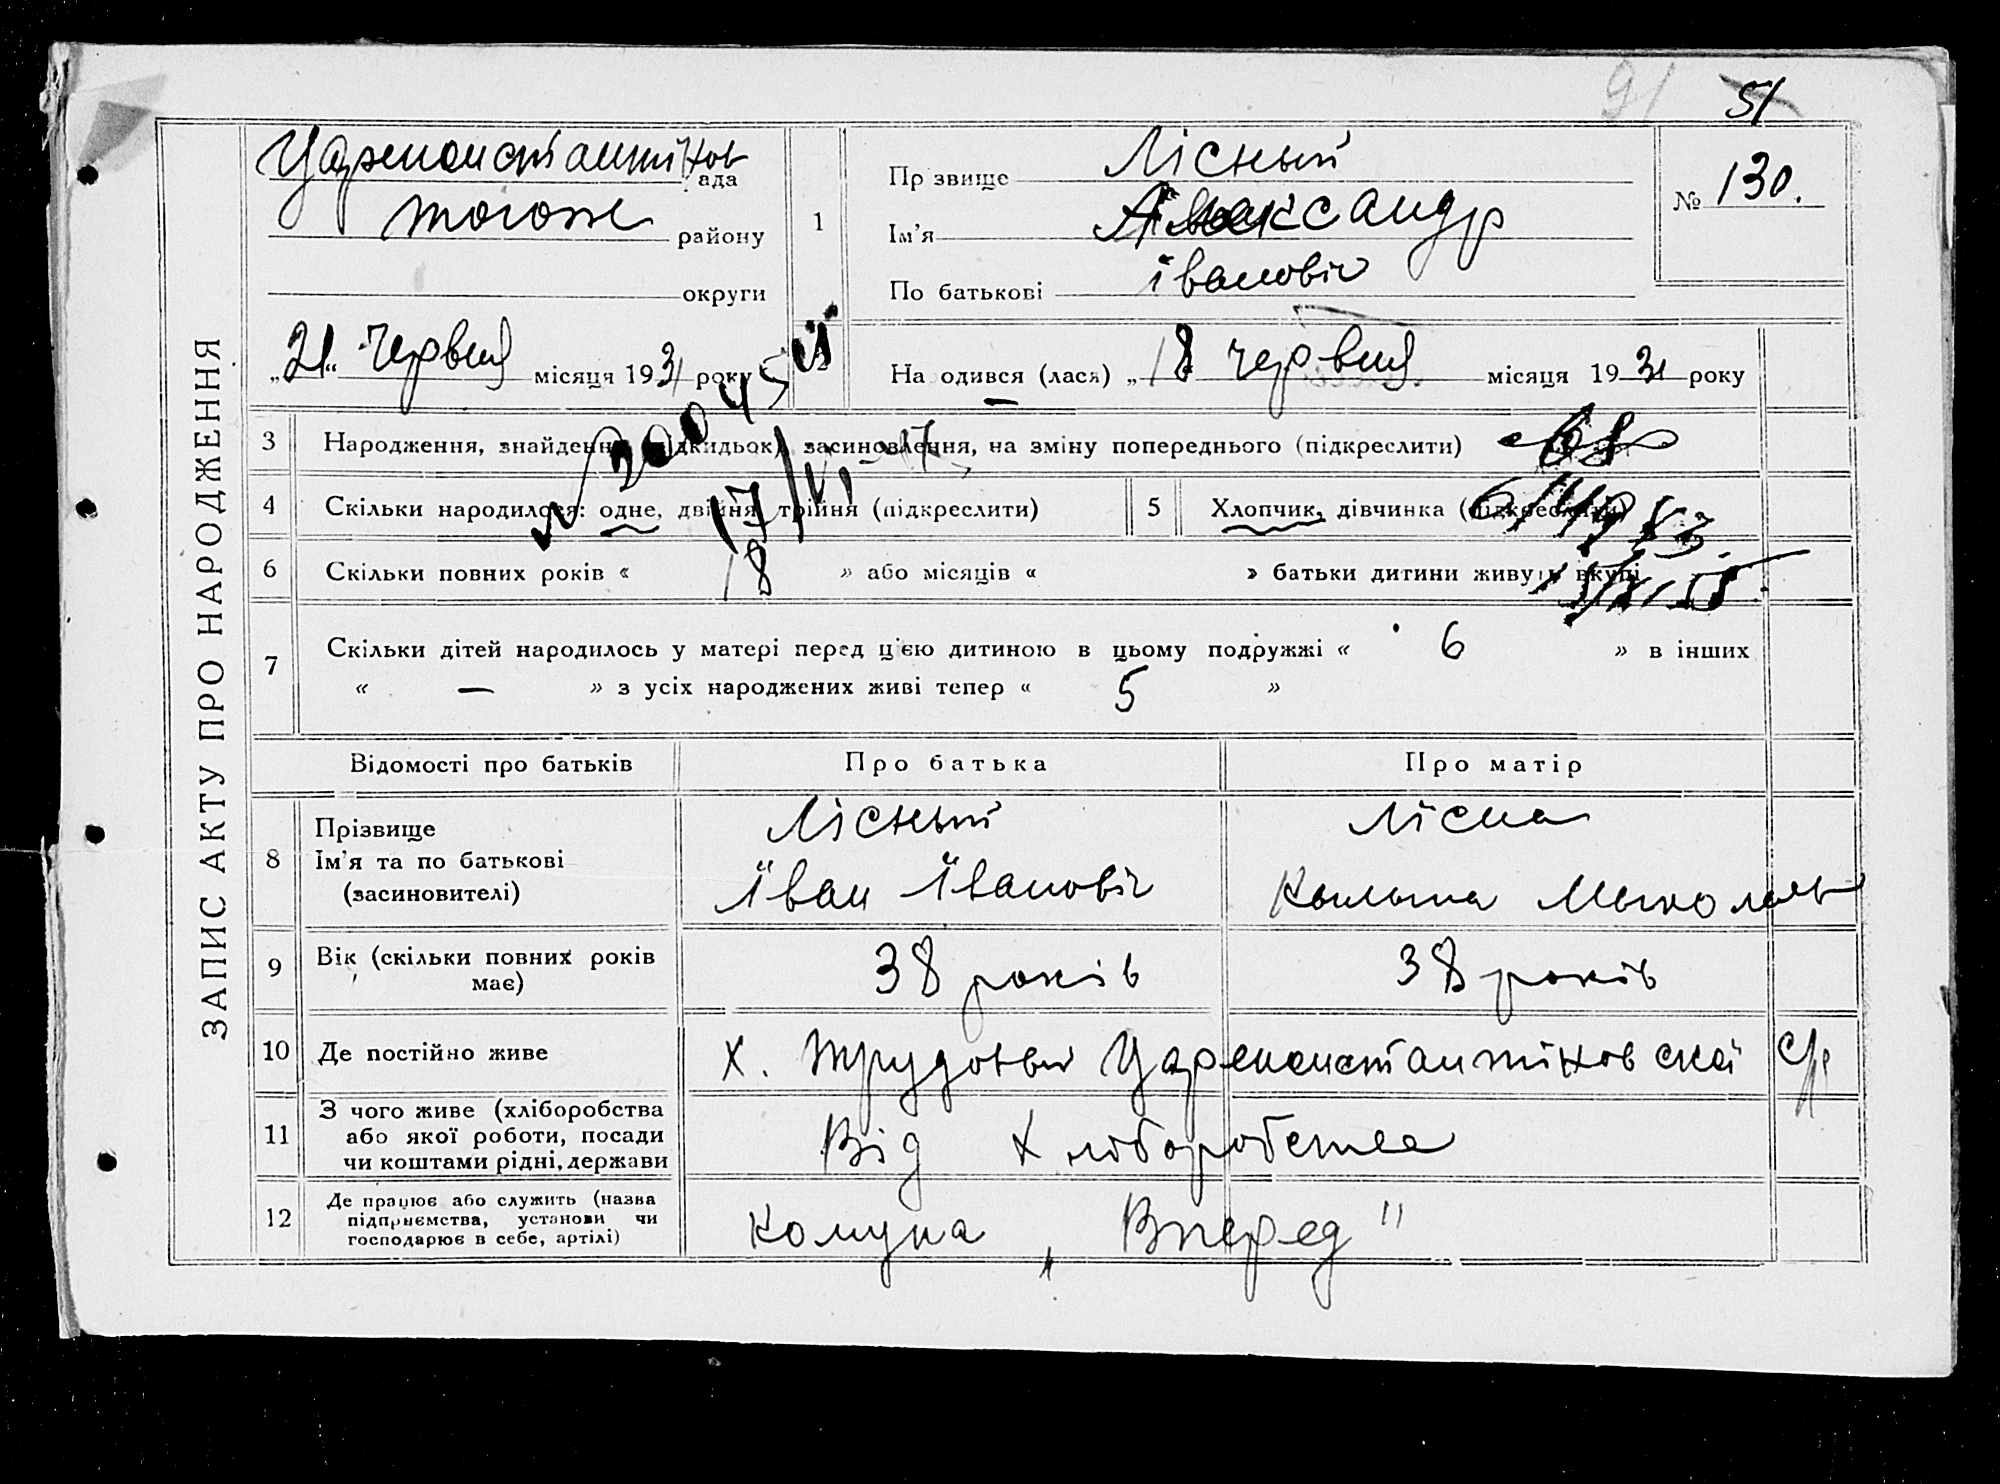 91 51
Цареконстантінов рада
тогож району
округи
„21“ червня місяця 1931 року
1
Пр звище Лісный
Ім'я Александр
По батькові Івановіч
№ 130.
На одився (лася) „18 червня місяця 1931 року
3 Народження, знайдення засиновлення, на зміну попереднього (підкреслити)
4 Скільки народилося: одне, двійня, трійня (підкреслити)
5 Хлопчик, дівчинка (підкреслити)
6 Скільки повних років « 18 » або місяців « » батьки дитини живуть вкупі
7 Скільки дітей народилось у матері перед цією дитиною в цьому подружжі « 6 » в інших
« — » з усіх народжених живі тепер « 5 »
ЗАПИС АКТУ ПРО НАРОДЖЕННЯ
Відомості про батьків Про батька Про матір
8 Прізвище Лісный Лісна
Ім'я та по батькові Іван Івановіч
(засиновителі)
9 Вік (скільки повних років має) 38 років 38 років
10 Де постійно живе х. Трудовый Цареконстантіновскаї с/р
11 З чого живе (хліборобства
або якої роботи, посади
чи коштами рідні, держави
Від хліборобства
12 Де працює або служить (назва
підприємства, установи чи
господарює в себе, артілі)
комуна „Вперед"